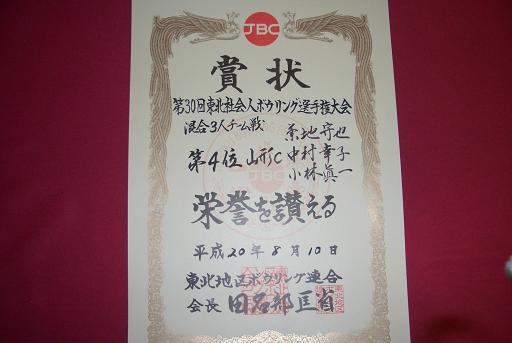 JBC
賞状
第30回東北社会人ボウリング選手権大会
混合3人チーム戦
第4位 山形C
菊地守也
中村幸子
小林眞一
JBC
栄誉を讃える
平成20年8月10日
東北地区ボウリング連合
会長 田名部匡省